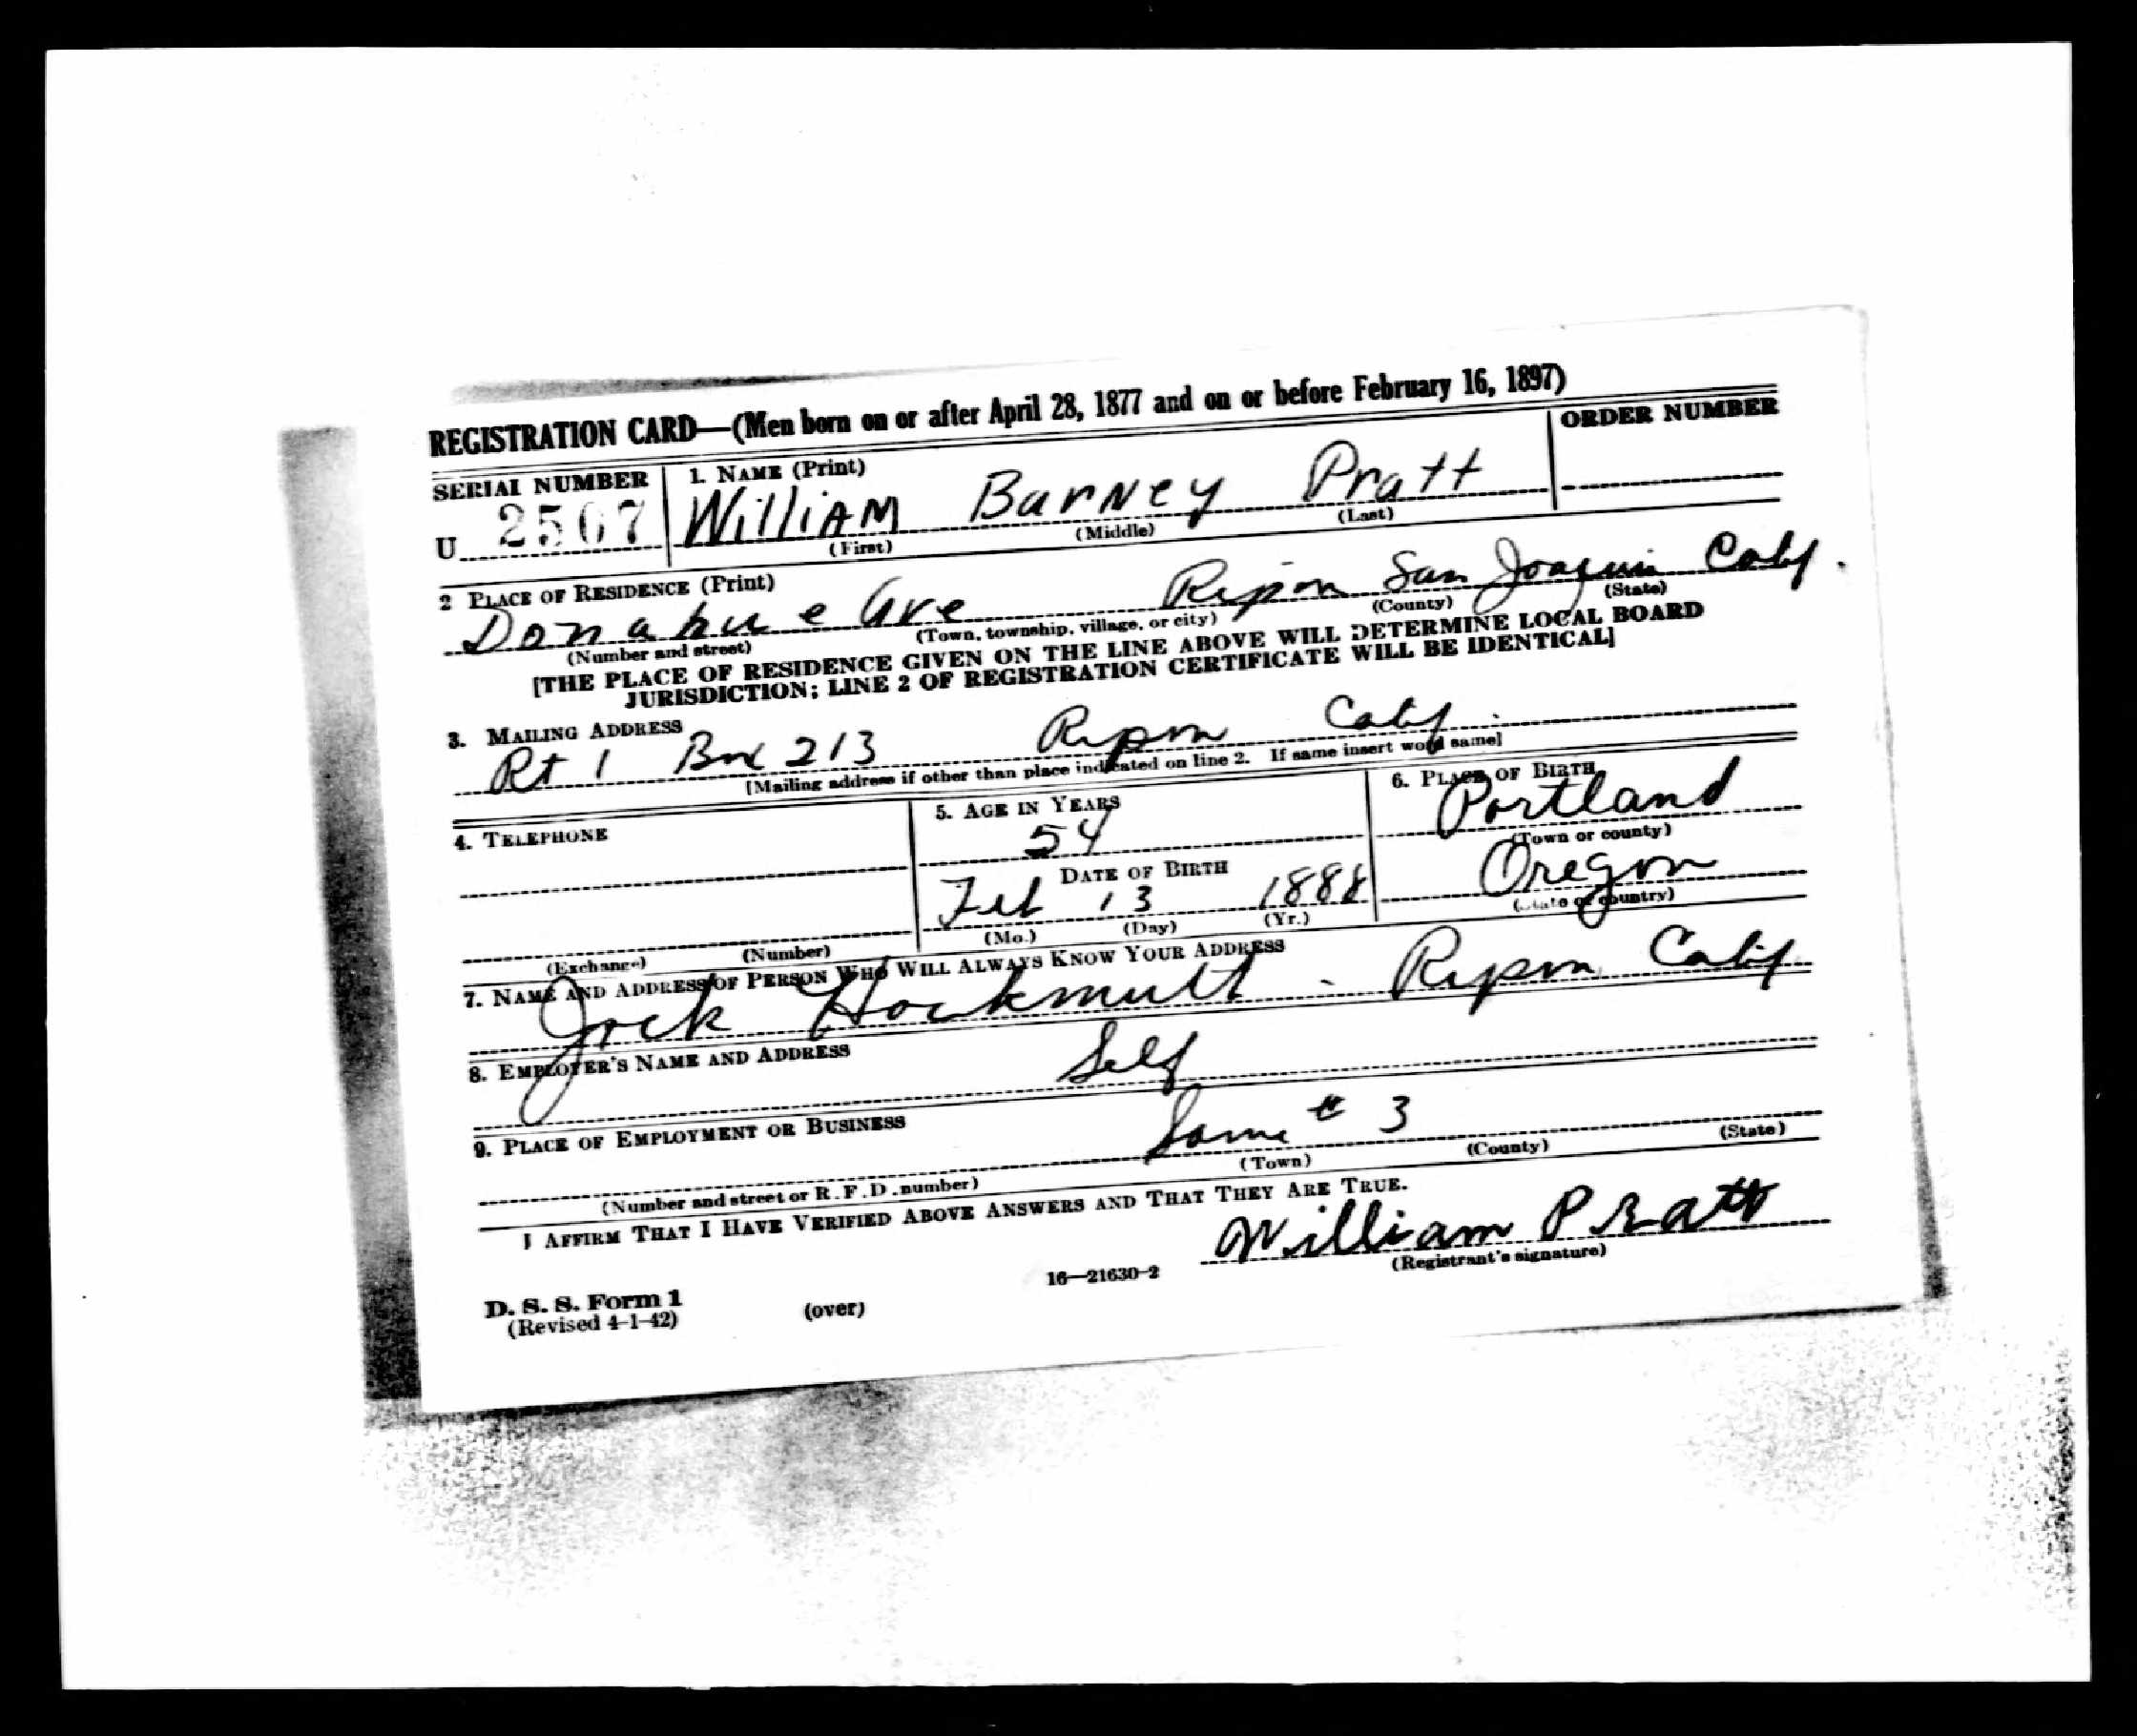 REGISTRATION CARD—(Men born on or after April 28, 1877 and on or before February 16, 1897)
SERIAL NUMBER
1. NAME (Print)
ORDER NUMBER
U 2507
WilliAM BarNey Pratt
(First) (Middle) (Last)
2 PLACE OF RESIDENCE (Print)
Donahue Ave Ripon San Joaquin Calif.
(Number and street) (Town, township, village, or city) (County) (State)
[THE PLACE OF RESIDENCE GIVEN ON THE LINE ABOVE WILL DETERMINE LOCAL BOARD
JURISDICTION; LINE 2 OF REGISTRATION CERTIFICATE WILL BE IDENTICAL]
3. MAILING ADDRESS
Rt 1 Box 213 Ripon Calif.
[Mailing address if other than place indicated on line 2. If same insert word same]
4. TELEPHONE
5. AGE IN YEARS
6. PLACE OF BIRTH
54
Portland
(Town or county)
DATE OF BIRTH
Oregon
Feb 13 1888
(State or country)
(Exchange) (Number)
(Mo.) (Day) (Yr.)
7. NAME AND ADDRESS OF PERSON WHO WILL ALWAYS KNOW YOUR ADDRESS
Jack - Ripon Calif
8. EMPLOYER'S NAME AND ADDRESS
Self
9. PLACE OF EMPLOYMENT OR BUSINESS
Same # 3
(Number and street or R.F.D. number) (Town) (County) (State)
I AFFIRM THAT I HAVE VERIFIED ABOVE ANSWERS AND THAT THEY ARE TRUE.
William Pratt
(Registrant's signature)
D. S. S. Form 1
(Revised 4-1-42)
(over)
16—21630-2